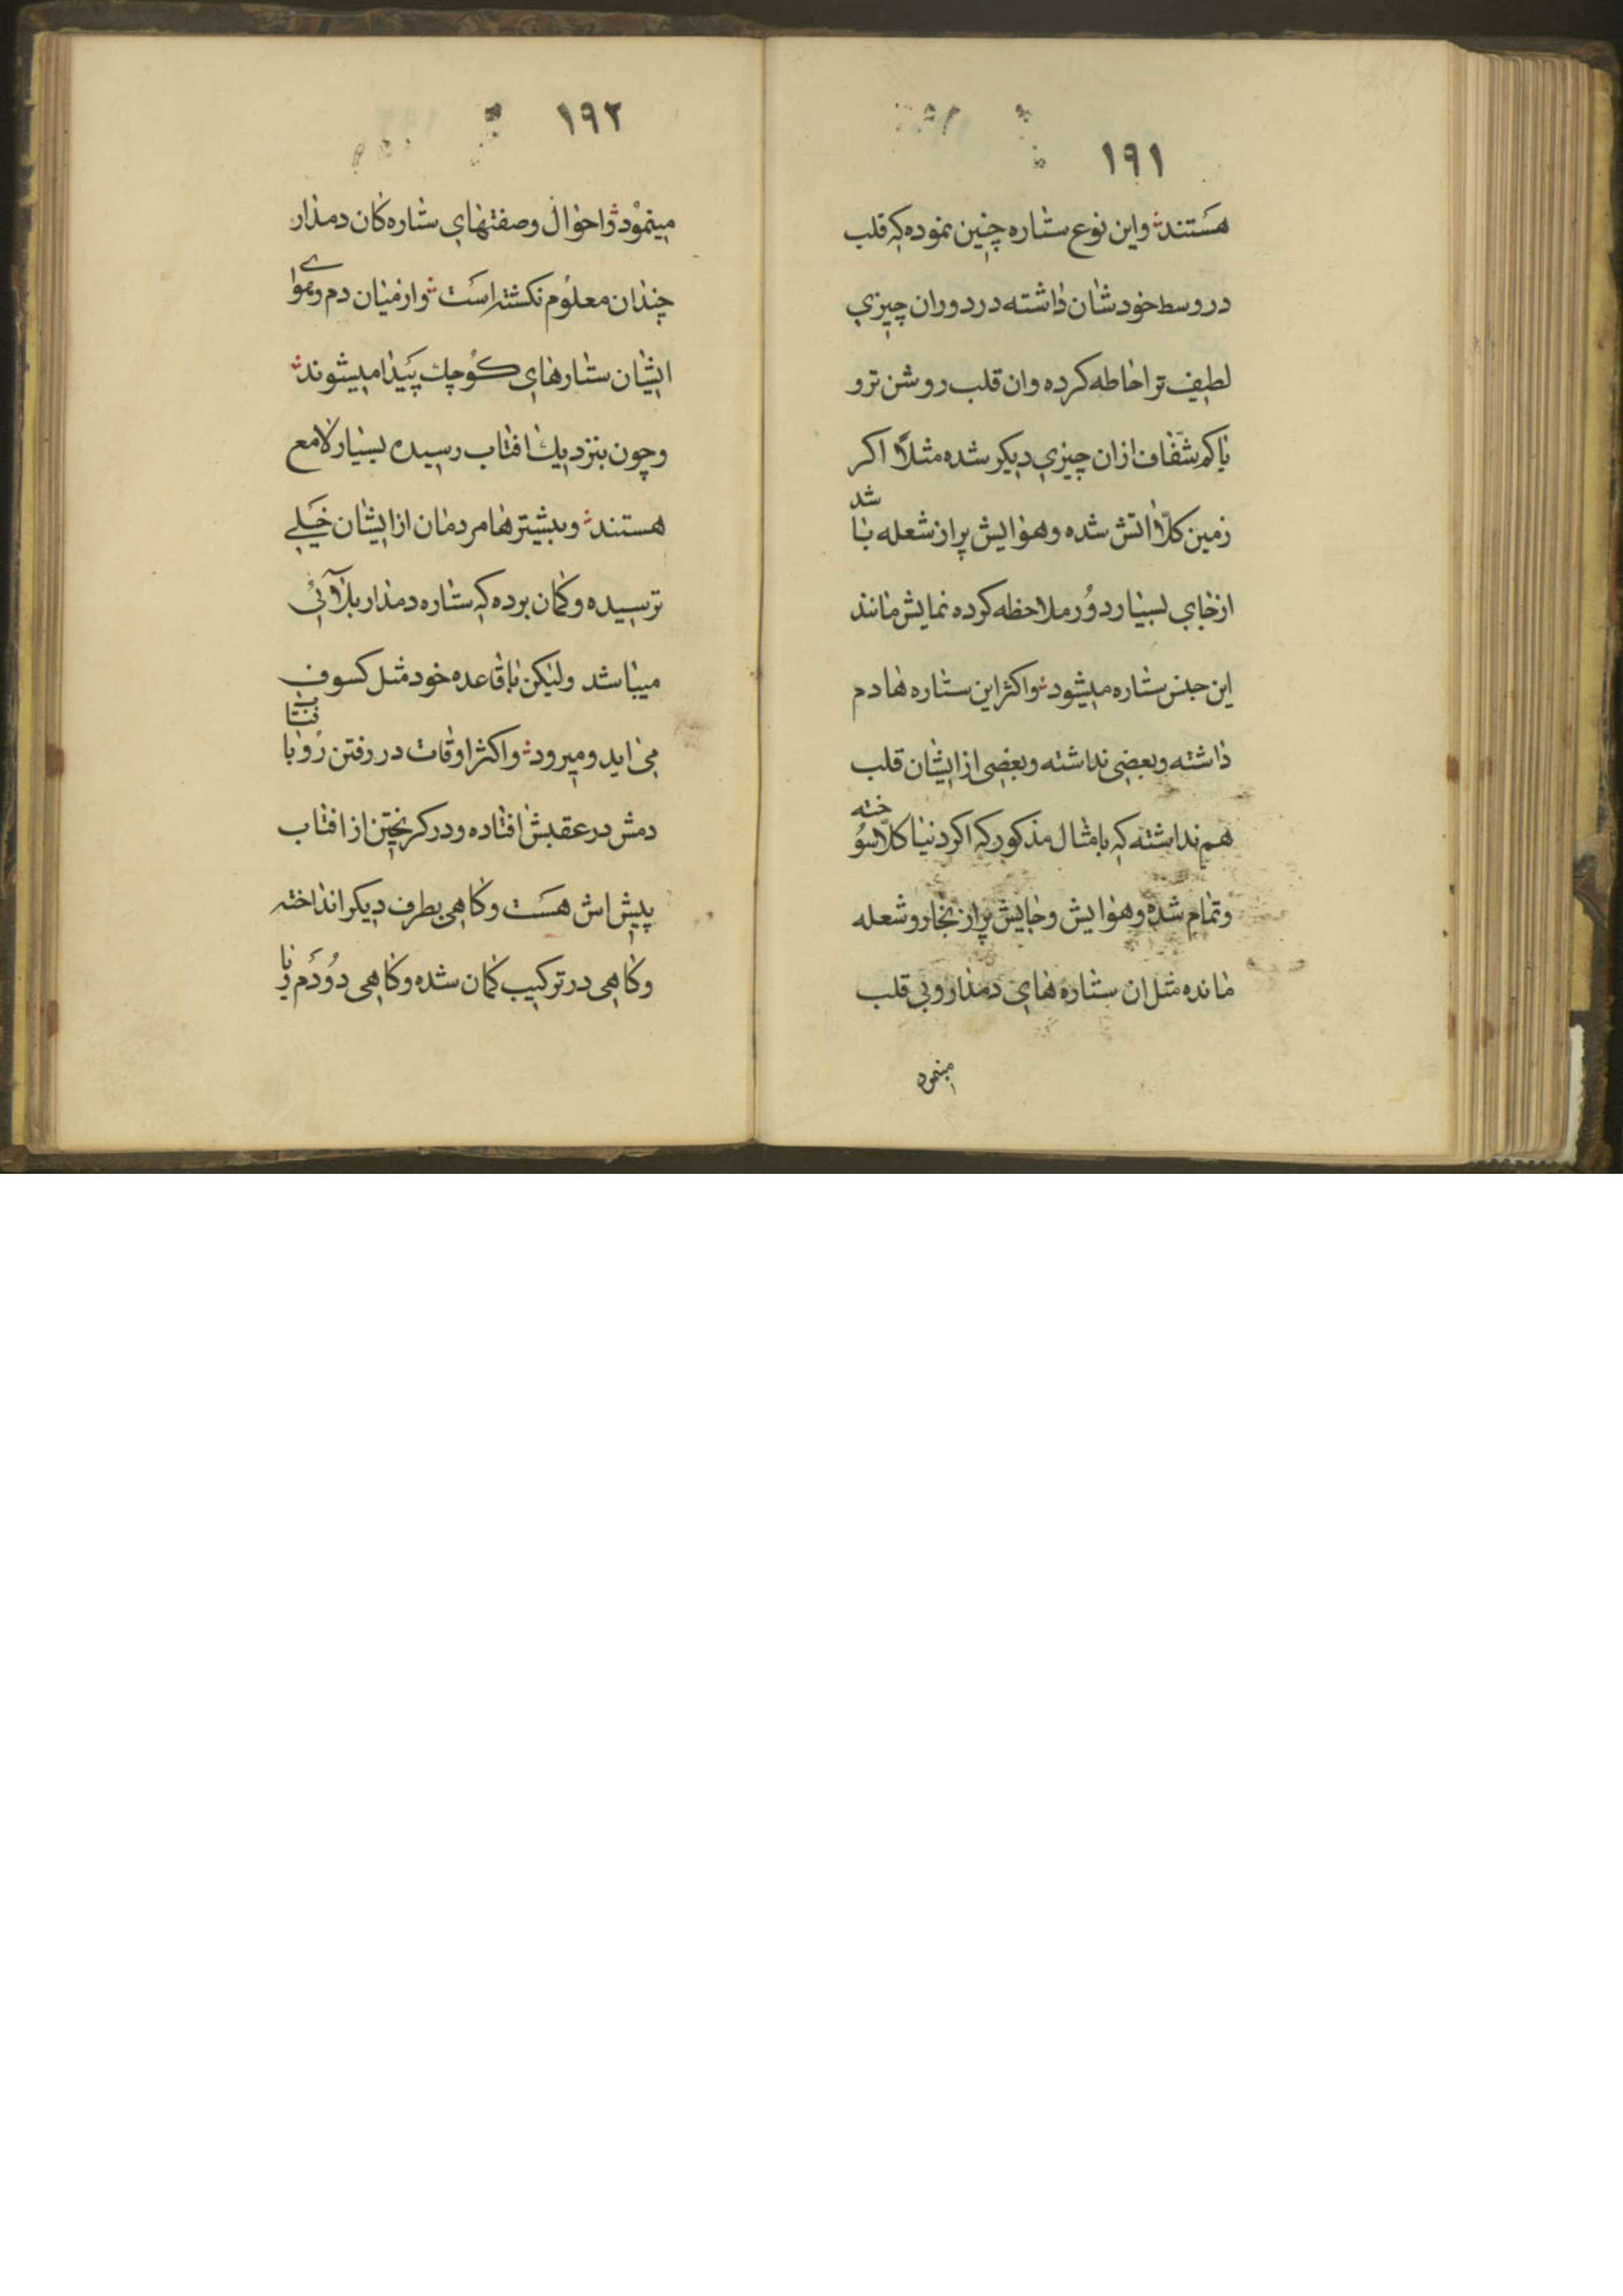 ۱۹۱
هستند واین نوع ستاره چنین نموده که قلب
در وسط خودشان داشته در دوران چیزی
لطیف تر احاطه کرده وان قلب روشن تر و
یا کم شفاف ازان چیزی دیکر شده مثلاً اکر
زمین کلّا اتش شده وهوایش پر از شعله باشد
از جای بسیار دور ملاحظه کرده نمایش مانند
این جنس ستاره میشود واکثر این ستاره ها دم
داشته وبعضی نداشته وبعضی از ایشان قلب
هم نداشته که با مثال مذکور که اکر دنیا کلّا سوخته
وتمام شده وهوایش وجایش پر از بخار وشعله
مانده مثل ان ستاره های دمدار وبی قلب
مینمود
۱۹۲
مینمود واحوال وصفتهای ستاره کان دمدار
چندان معلوم نکشته است واز میان دم وهوای
ایشان ستارهای کوچک پیدا میشوند
وچون بنزدیک افتاب رسیده بسیار لامع
هستند وبیشترها مردمان از ایشان خیلی
ترسیده وکمان برده که ستاره دمدار بلائی
میباشد ولیکن با قاعده خود مثل کسوف
می اید ومیرود واکثر اوقات در رفتن رو بافتاب
دمش در عقبش افتاده ودر کریختن از افتاب
پیش اش هست وکاهی بطرف دیکر انداخته
وکاهی در ترکیب کمان شده وکاهی دو دم ویا